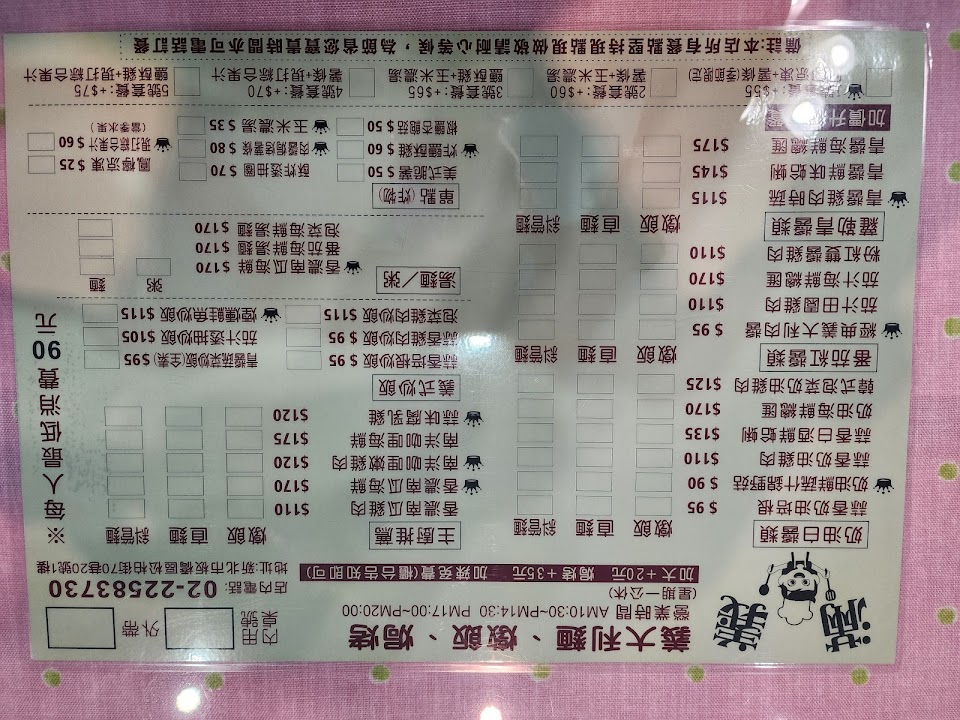 滿 義
義大利麵、燉飯、焗烤
營業時間 AM10:30~PM14:30 PM17:00~PM20:00
(星期一公休)
加大+20元 焗烤+35元 加辣免費(櫃台告知即可)
內用桌號
外帶
店內電話: 02-22583730
地址:新北市板橋區松柏街70巷20號1樓
※每人最低消費90元
奶油白醬類 燉飯 直麵 斜管麵
蒜香奶油培根 $95
奶油鮮蔬什錦野菇 $90
蒜香奶油雞肉 $110
蒜香白酒鮮蛤蜊 $135
奶油海鮮總匯 $170
韓式泡菜奶油雞肉 $125
番茄紅醬類 燉飯 直麵 斜管麵
經典義大利肉醬 $95
茄汁田園雞肉 $110
茄汁海鮮總匯 $170
粉紅雙醬雞肉 $110
羅勒青醬類 燉飯 直麵 斜管麵
青醬雞肉時蔬 $115
青醬鮮味蛤蜊 $145
青醬海鮮總匯 $175
主廚推薦 燉飯 直麵 斜管麵
香濃南瓜雞肉 $110
香濃南瓜海鮮 $170
南洋咖哩嫩雞肉 $120
南洋咖哩海鮮 $175
蒜味腐乳雞 $120
義式炒飯
蒜香培根炒飯 $95 青醬蔬菜炒飯(全素) $95
蒜香雞肉炒飯 $95 茄汁辣油炒飯 $105
泡菜雞肉炒飯 $115 煙燻鮭魚炒飯 $115
湯麵/粥 粥 麵
香濃南瓜海鮮 $170
番茄海鮮湯麵 $170
泡菜海鮮湯麵 $170
單點(炸物)
美式肥薯 $50 酥炸透抽圈 $70 鳳梅涼凍 $25
炸鹽酥雞 $60 肉醬焗烤薯條 $80 現打綜合果汁 $60
椒鹽杏鮑菇 $50 玉米濃湯 $35 (當季水果)
加價升級
+$55 2號套餐:+$60 3號套餐:+$65 4號套餐:+$70 5號套餐:+$75
涼凍+薯條(季節限定) 薯條+玉米濃湯 鹽酥雞+玉米濃湯 薯條+現打綜合果汁 鹽酥雞+現打綜合果汁
備註:本店所有餐點堅持現點現做敬請耐心等候,為節省您寶貴時間亦可電話訂餐